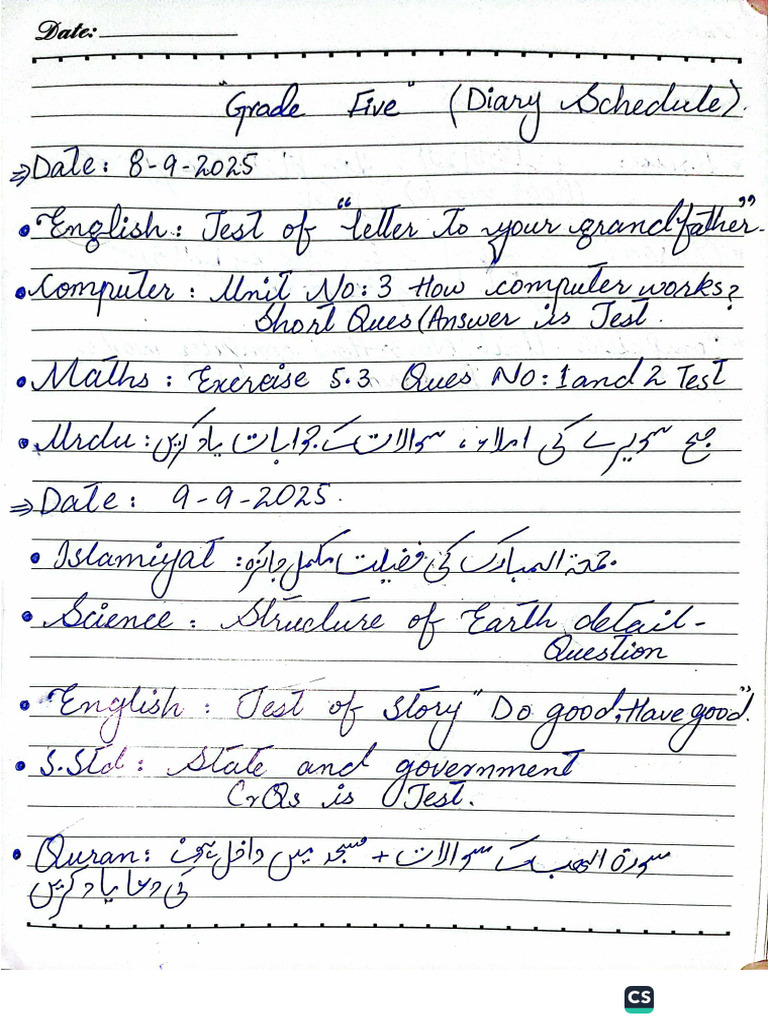 Date:
"Grade Five" (Diary Schedule).
⇒Date: 8-9-2025
• English: Test of "letter to your grandfather".
• Computer: Unit No: 3 How computer works?
Short Ques/Answer is Test.
• Maths: Exercise 5.3 Ques No: 1 and 2 Test
• Urdu: صبح سویرے کی املاء، سوالات کے جوابات یاد کریں
⇒ Date: 9-9-2025.
• Islamiyat: جمعۃ المبارک کی فضیلت مکمل جائزہ
• Science: Structure of Earth detail-
Question
• English: Test of story "Do good, Have good".
• S.Std: State and government
CrQs is Test.
• Quran: سورۃ اللھب کے سوالات + مسجد میں داخل ہونے
کی دعا یاد کریں
CS